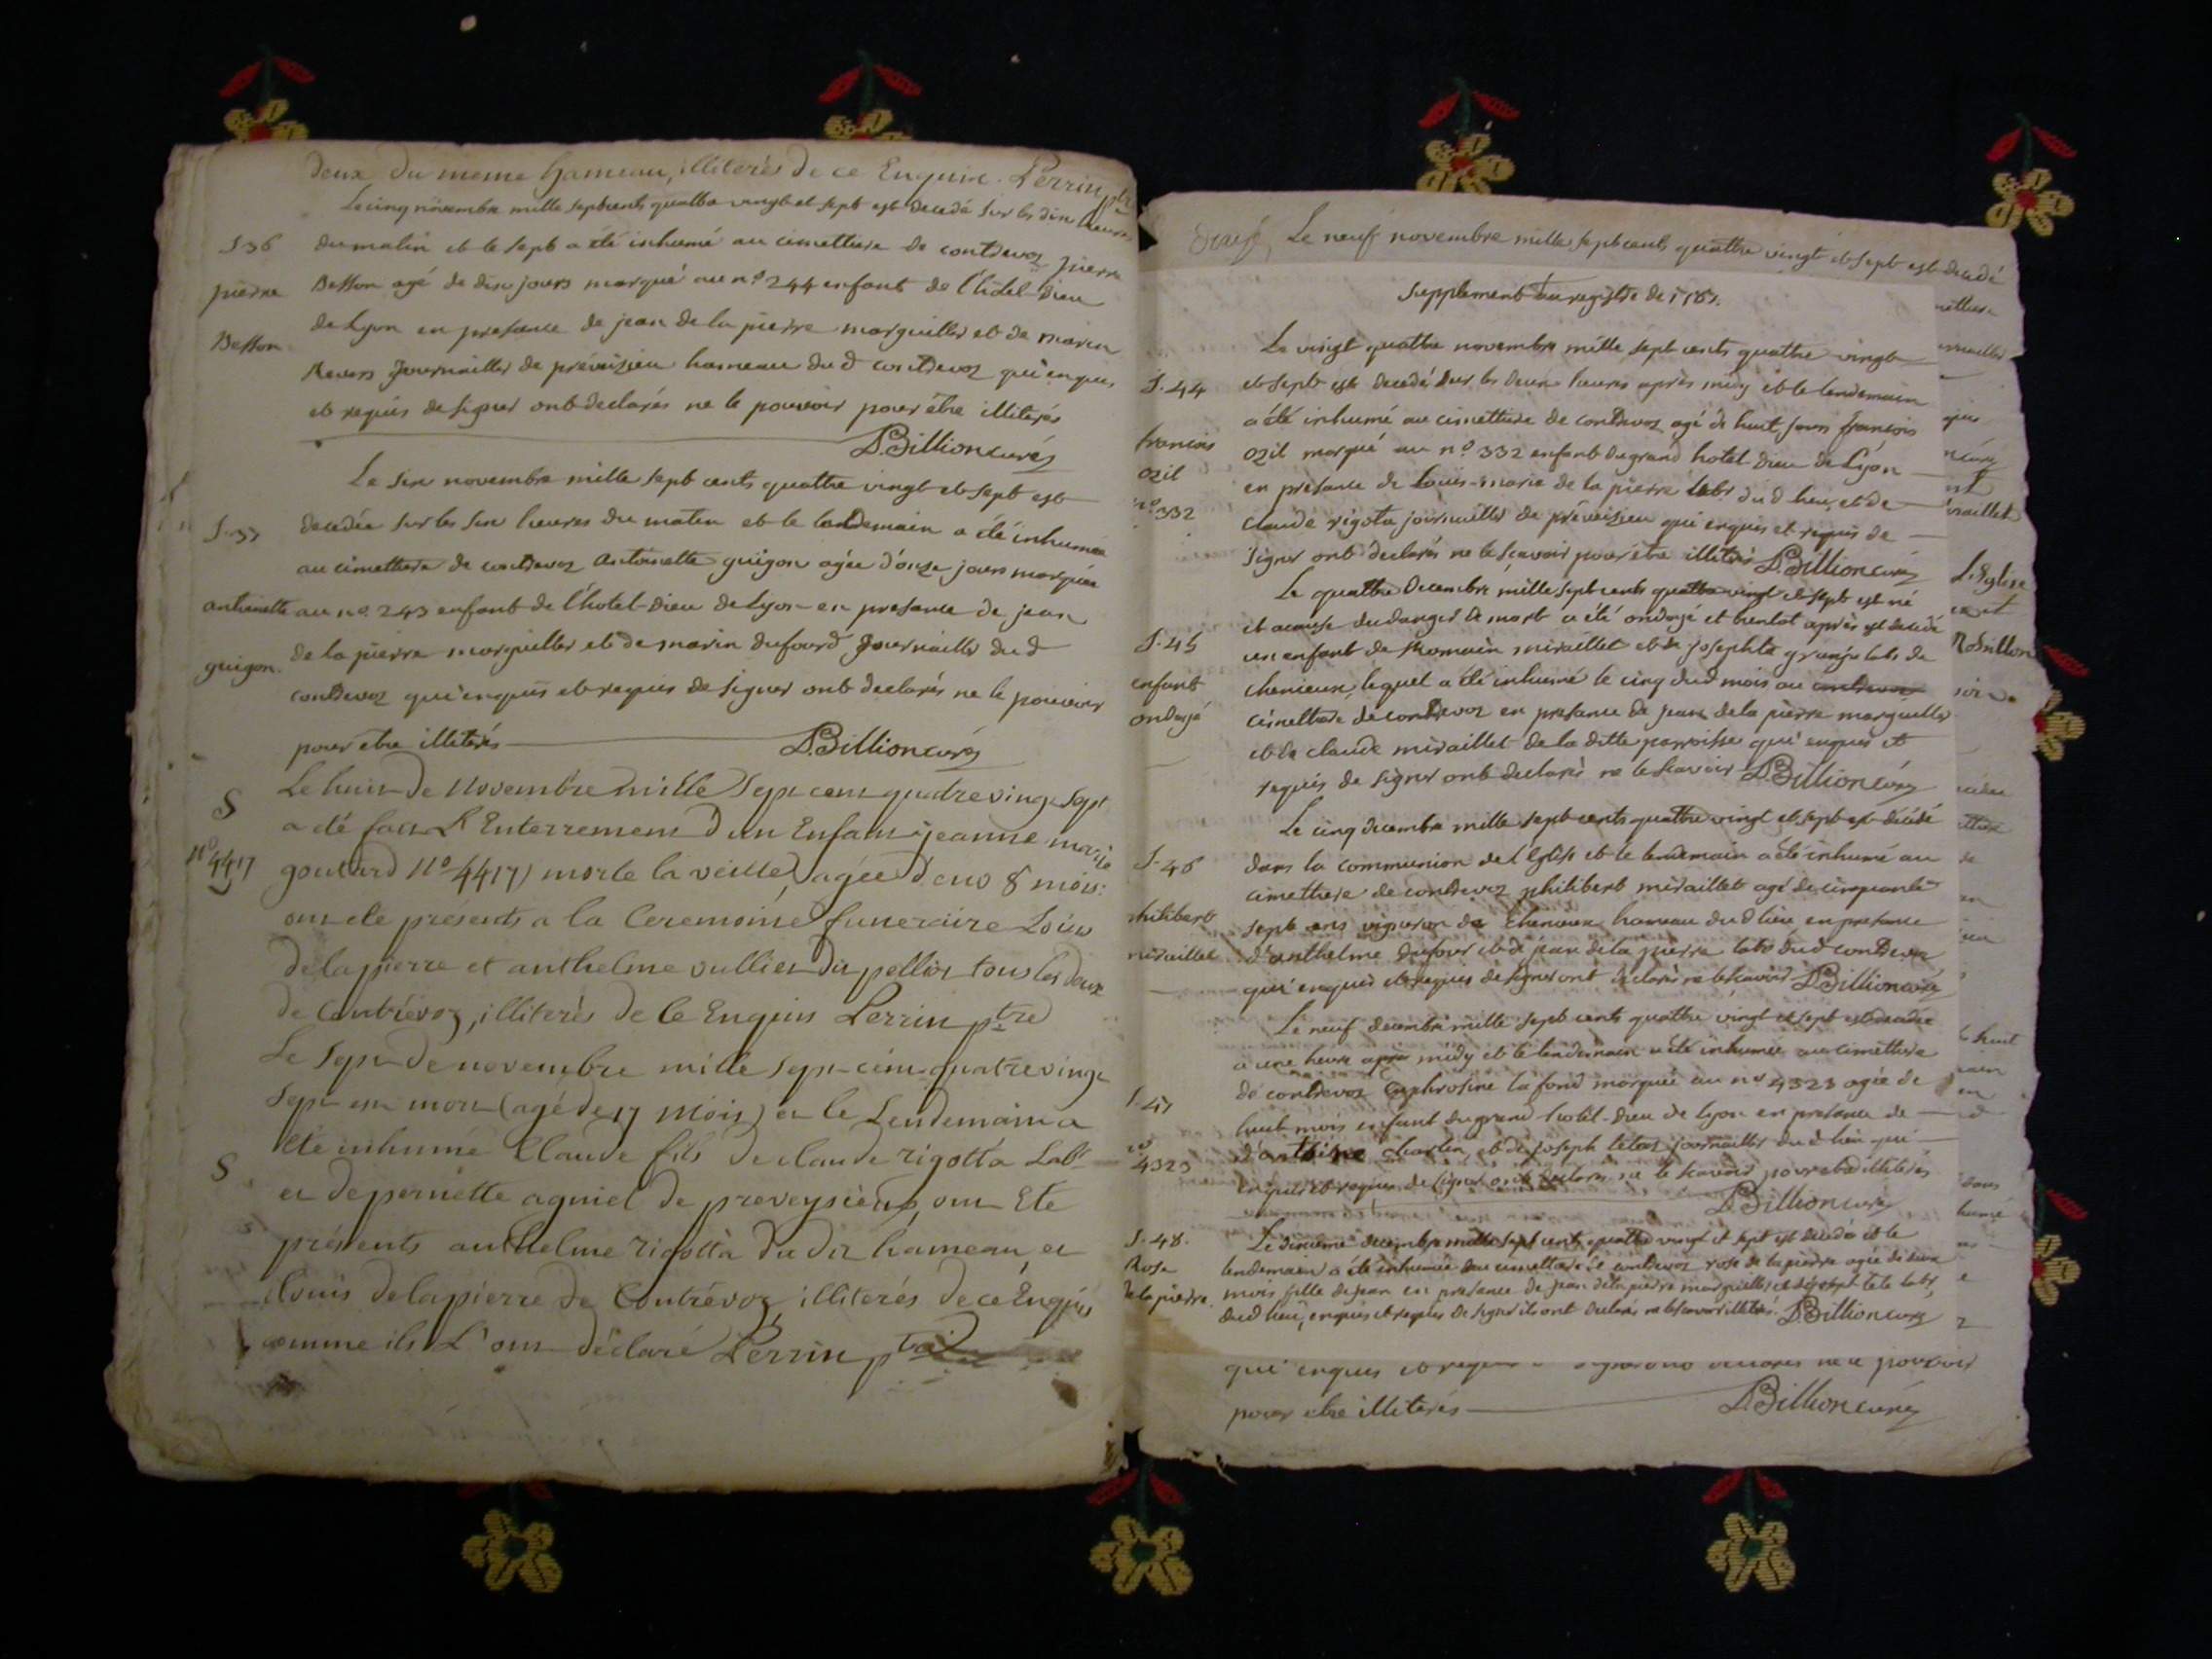 deux du meme hameau, illiterés de ce Enquis. Perrin ptre
Le cinq novembre mille sept cents quattre vingt et sept est decedé sur les dix heures
S-36
du matin et le sept a été inhumé au cimettiere de contrevoz pierre
pierre
Besson agé de dix jours marqué au n.o 244 enfant de l'hotel-Dieu
Besson
de Lyon en presence de jean de la pierre marguiller et de marin
Revers journallier de préveisieu hameau dud contrevoz qui enquis
et requis de signer ont declarés ne le pouvoir pour être illiterés
D.Billion curé
Le six novembre mille sept cents quattre vingt et sept est
S-37
decedée sur les six heures du matin et le lendemain a été inhumée
au cimettiere de contrevoz antoinette guigon agée d'onze jours marquée
antoinette
au no. 243 enfant de l'hotel-Dieu de Lyon en presence de jean
guigon.
de la pierre marguiller et de marin dufourd journallier dud
contrevoz qui enquis et requis de signer ont declarés ne le pouvoir
pour etre illiterés
D.Billion curé
Le huit de Novembre mille Sept cent quatre vingt Sept
S
a été fait L'Enterrement D'un Enfant jeanne marie
No 4417
goutard No 4417) morte la veille, agée d'env 8 mois:
ont eté présents a la Ceremoine funeraire Loüis
Delapierre et anthelme vullier dit pellioz tous les deux
de Contrévoz, illiterés de Ce Enquis Perrin ptre
Le Sept de novembre mille Sept-cent quatre vingt
Sept est mort (agé de 17 Mois) et le Lendemain a
Eté inhumé Claude fils de claude rigotta Labr
S
et de pernette agniel de preveysieux, ont Eté
présents anthelme rigotta du dit hameau, et
Loüis Delapierre de Contrévoz illiterés de ce Enquis
comme ils L'ont déclaré Perrin ptre
Le neuf novembre mille sept cents quattre vingt et sept est decedé
Supplement au registre de 1787.
Le vingt quattre novembre mille sept cents quattre vingt
S-44
et sept est decedé sur les deux heures après midy et le lendemain
a été inhumé au cimettiere de contrevoz agé de huit jours françois
françois
ozil
ozil marqué au n.o 332 enfant du grand hotel Dieu de Lyon
en présence de Louis-marie de la pierre labr du d lieu, et de
n.o 332
claude rigotta journallier de preveisieu qui enquis et requis de
signer ont declarés ne le scavoir pour etre illiterés D.Billion curé
Le quattre Decembre mille sept cents quattre vingt et sept est né
S-45
et a cause du danger de mort a été ondoyé et bientot après est decedé
un enfant de Romain miraillet et de josephte granju labr de
enfant
chenieux, lequel a été inhumé le cinq dud mois au
ondoyé
cimettiere de contrevoz en presence de jean de la pierre marguiller
et de claude miraillet de la ditte parroisse qui enquis et
requis de signer ont declarés ne le scavoir D.Billion curé
Le cinq decembre mille sept cents quattre vingt et sept est decedé
S-46
dans la communion de l'Eglise et le lendemain a été inhumé au
cimettiere de contrevoz philibert miraillet agé de cinquante
philibert
sept ans vigneron de Chenieux hameau dud lieu en presence
miraillet
d'anthelme dufour et de jean de la pierre labr dud contrevoz
qui enquis et requis de signer ont declarés ne le scavoir D.Billion curé
Le neuf decembre mille sept cents quattre vingt et sept est decedée
a une heure après midy et le lendemain a été inhumée au cimettiere
S-47
de contrevoz Euphrosine la fond marquée au no 4323 agée de
huit mois enfant du grand hotel-Dieu de Lyon en presence de
no 4323
d'anthelme charlin et de joseph tetaz journallier dud lieu qui
enquis et requis de signer ont declarés ne le scavoir pour etre illiterés
D.Billion curé
S-48.
Le dixieme decembre mille sept cents quattre vingt et sept est decedée et le
Rose
lendemain a été inhumée au cimettiere de contrevoz rose de la pierre agée de deux
de la pierre.
mois fille de jean en presence de jean de la pierre marguiller et de joseph tete labr,
dud lieu, enquis et requis de signer ils ont declarés ne le scavoir illiterés. D.Billion curé
qui enquis et requis ne le pouvoir
pour etre illiterés
D.Billion curé
L'Eglise